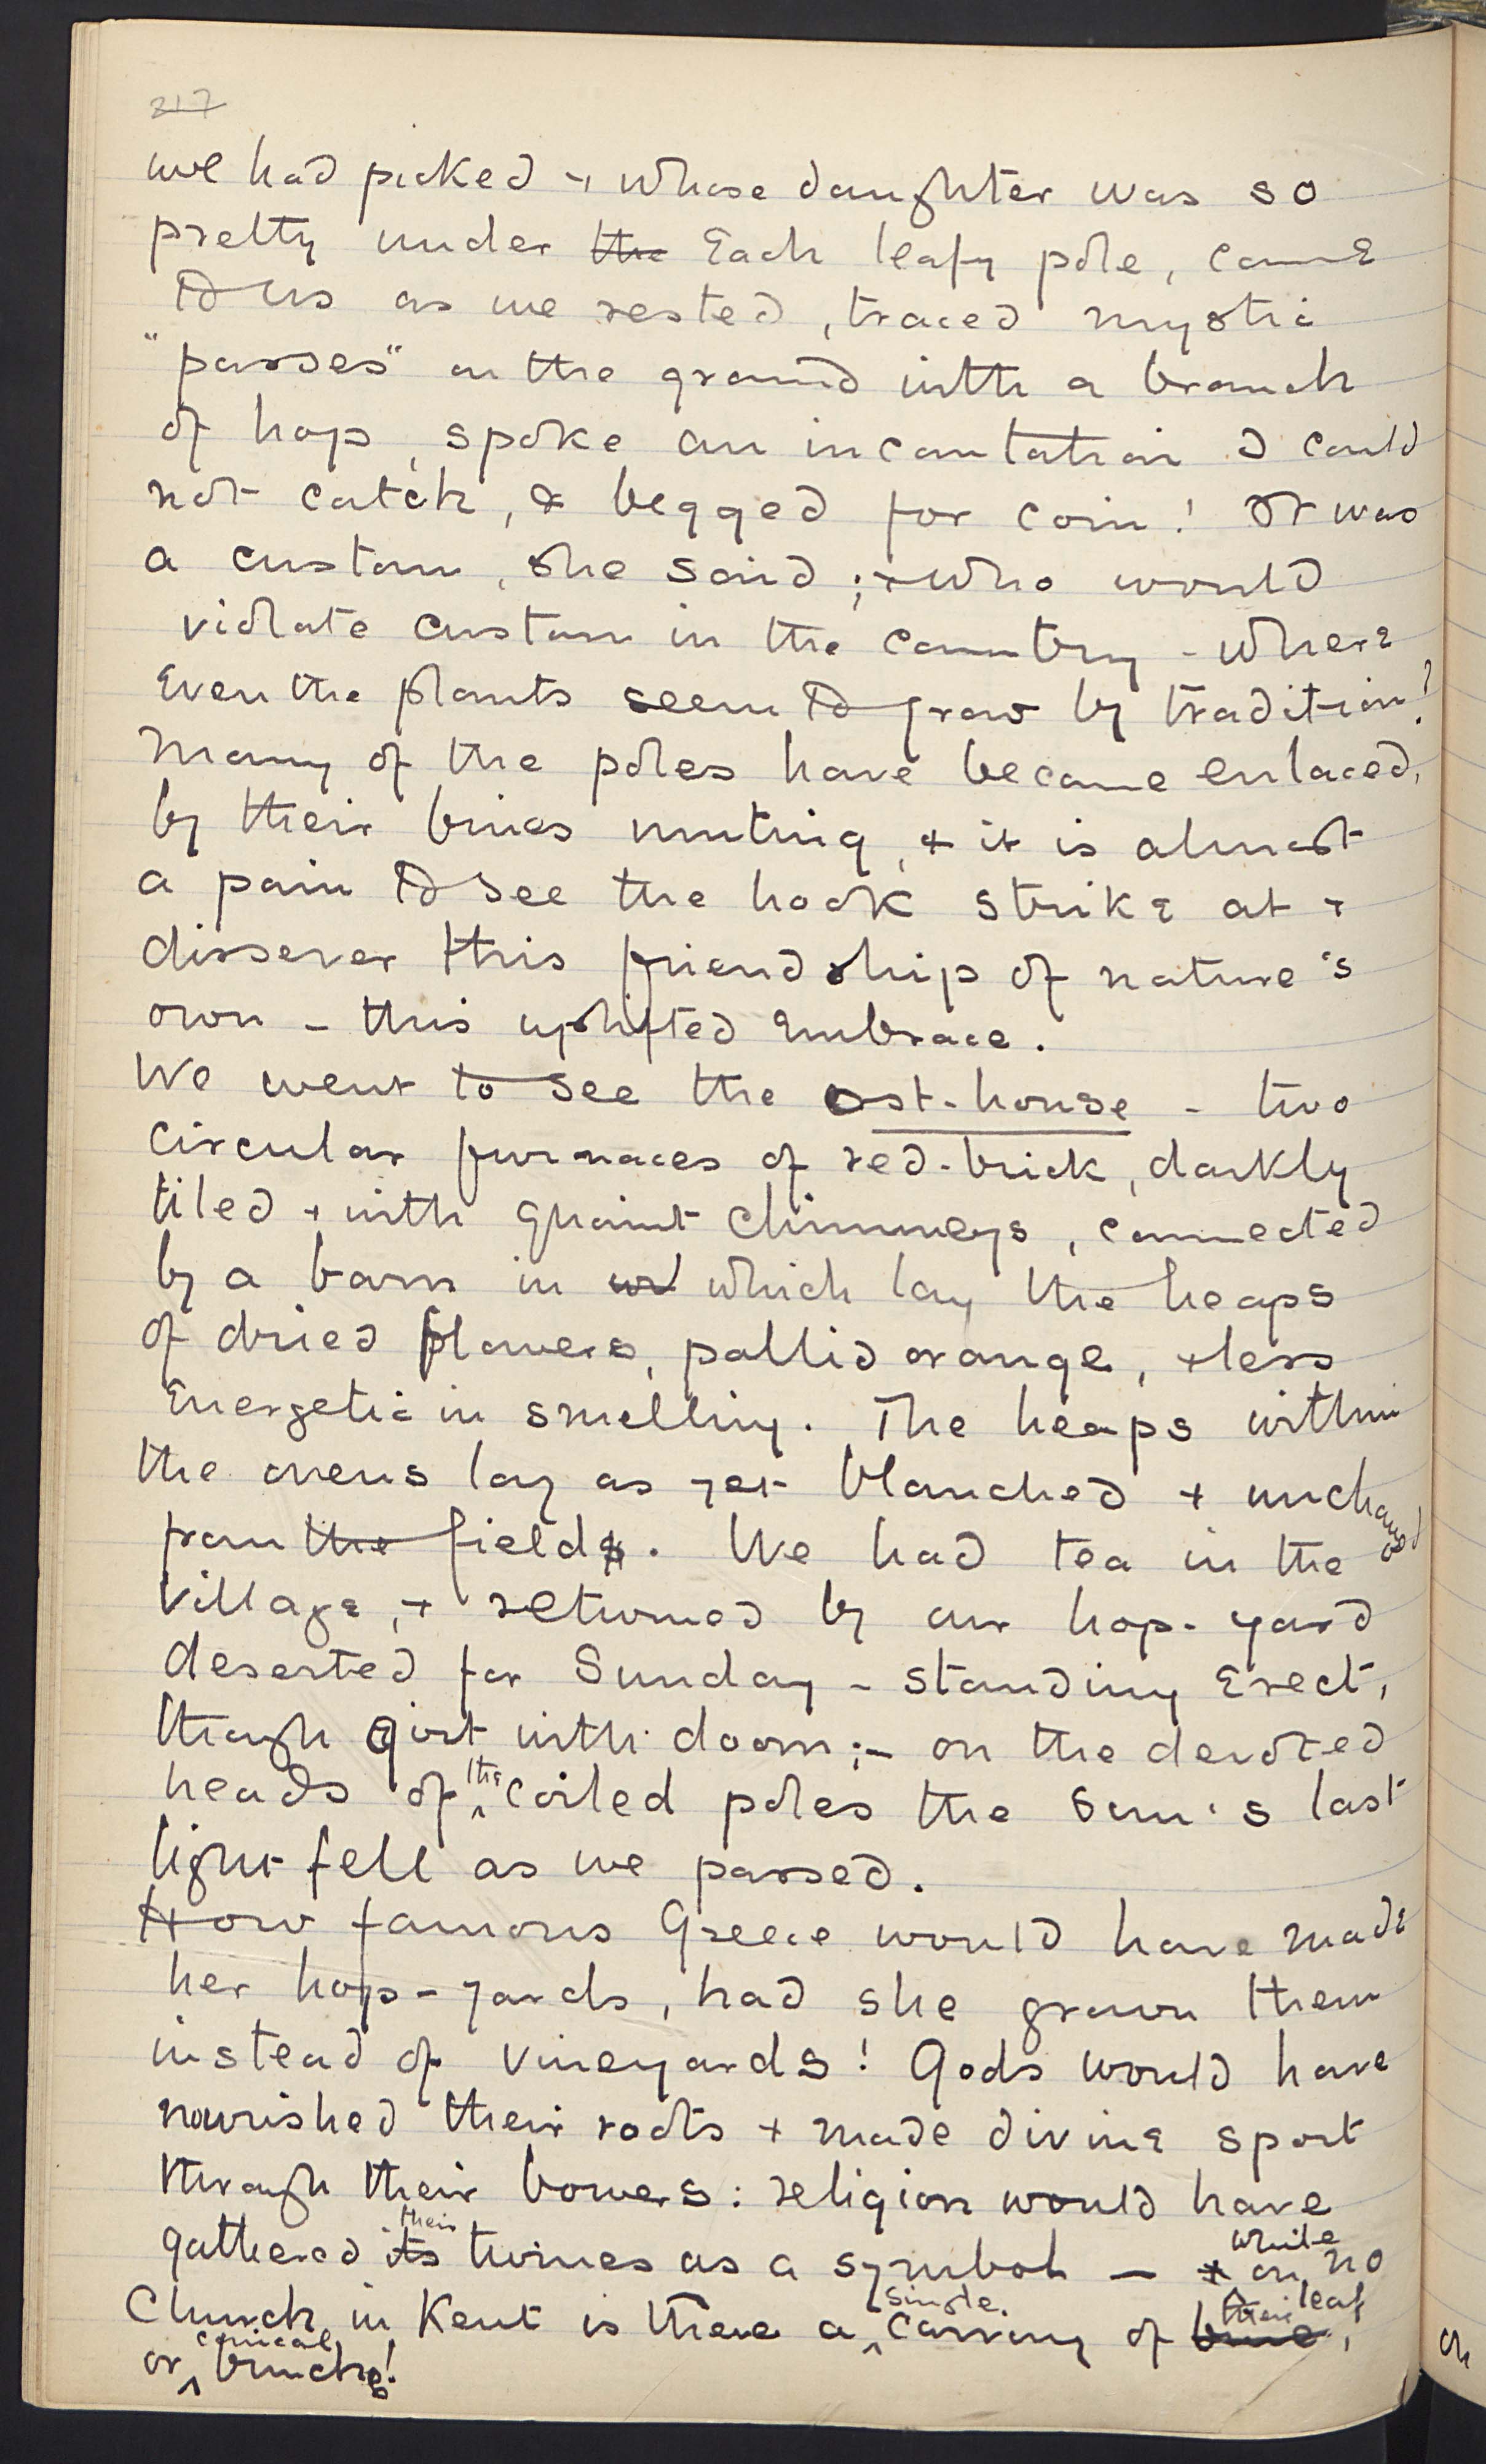 217
we had picked + whose daughter was so
pretty under the Each leafy pole, came
to us as we rested, traced mystic
"passes" on the ground with a branch
of hop, spoke an incantation I could
not catch, & begged for coin! It was
a custom, she said; + who would
violate custom in the country - where
Even the plants seem to grow by tradition?
Many of the poles have become enlaced,
by their bines uniting, + it is almost
a pain to see the hook strike at +
dissever this friendship of nature's
own - this uplifted Embrace.
We went to see the ost-house - two
circular furnaces of red-brick, darkly
tiled + with quaint chimneys, connected
by a barn in which lay the heaps
of dried flowers, pallid orange, + less
Energetic in smelling. The heaps within
the ovens lay as yet blanched + unchanged
from the fields. We had tea in the
Village, + returned by our hop-yard
deserted for Sunday - standing Erect,
though girt with doom;- on the devoted
heads of the coiled poles the Sun's last
light fell as we passed.
How famous Greece would have made
her hop-yards, had she grown them
instead of vineyards! Gods would have
nourished their roots + made divine sport
through their bowers: religion would have
gathered its their twines as a symbol — + while on no
Church in Kent is there a single carving of bine their leaf,
or conical bunches!